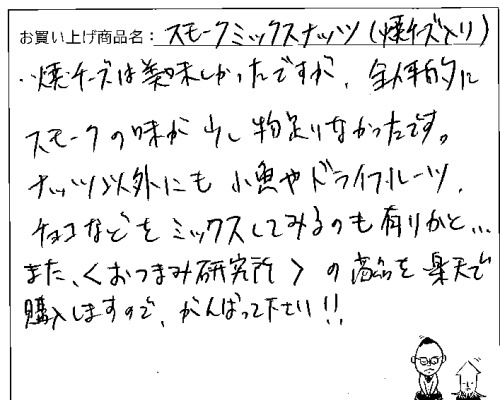 お買い上げ商品名：スモークミックスナッツ（燻チーズ入り）
・燻チーズは美味しかったですが、全体的に
スモークの味が少し物足りなかったです。
ナッツ以外にも小魚やドライフルーツ、
チョコなどをミックスしてみるのも有りかと…
また、〈おつまみ研究所〉の商品を楽天で
購入しますので、がんばって下さい!!